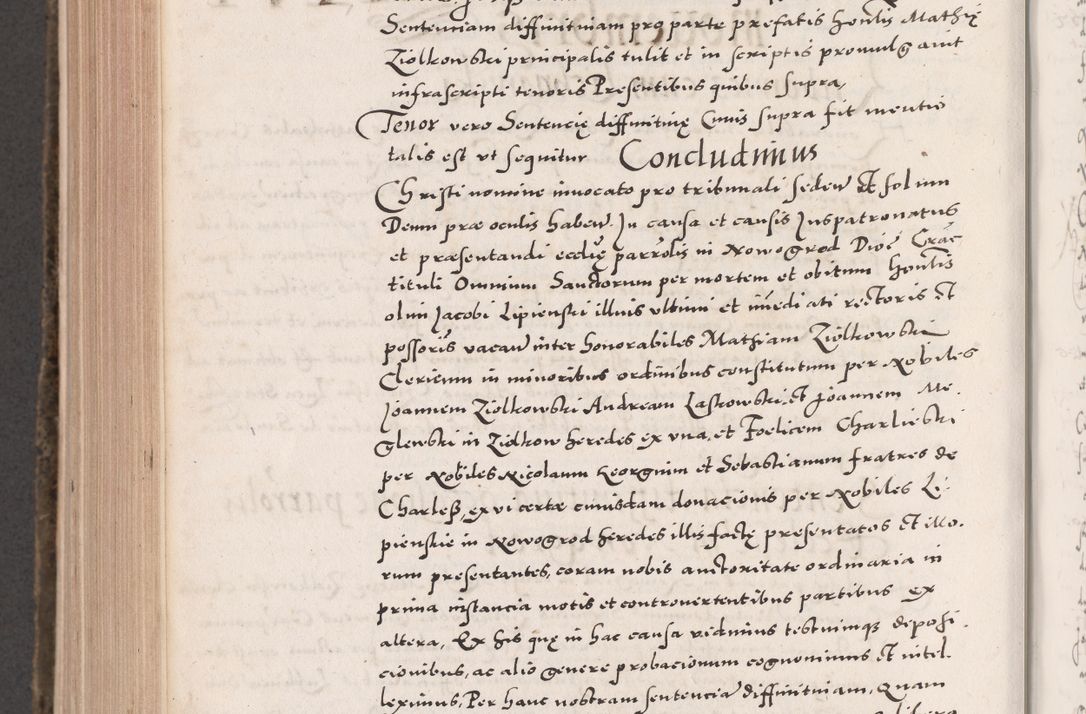 Sentenciam diffinitivam pro parte prefatis honlis Mathij
Ziolkowski principalis tulit et in scriptis promulgavit
infrascripti tenoris Presentibus quibus supra,
Tenor vero Sentencię diffinitivę Cuius supra fit mentio
talis est ut sequitur Concludimus
Christi nomine invocato pro tribunali seden et solum
Deum præ oculis haben. In causa et causis Iuspatronatus
et præsentandi ecclię parrolis in Nowogrod Dioe Crac
tituli Omnium Sanctorum per mortem et obitum honlis
olim Jacobi Lipienski illius ultimi et imediati rectoris et
possoris vacan inter honorabiles Mathiam Ziolkowski
Clericum in minoribus ordinibus constitutum per Nobiles
Joannem Ziolkowski Andream Laskowski et Joannem Me.
glewski in Ziolkow heredes ex una, et Foelicem Charliewski
per Nobiles Nicolaum Georgium et Sebastianum fratres de
Charless, ex vi certæ cuiusdam donacionis per Nobiles Li.
pienskie in Nowogrod heredes illis factę presentatos et illo.
rum presentantes, coram nobis auctoritate ordinaria in
prima instancia motis et controvertentibus partibus ex
altera, Ex his quę in hac causa vidimus testiumq₃ deposi.
cionibus, ac alio genere probacionum cognovimus et intel.
leximus, Per hanc nostram sentencia diffinitivam, Quam